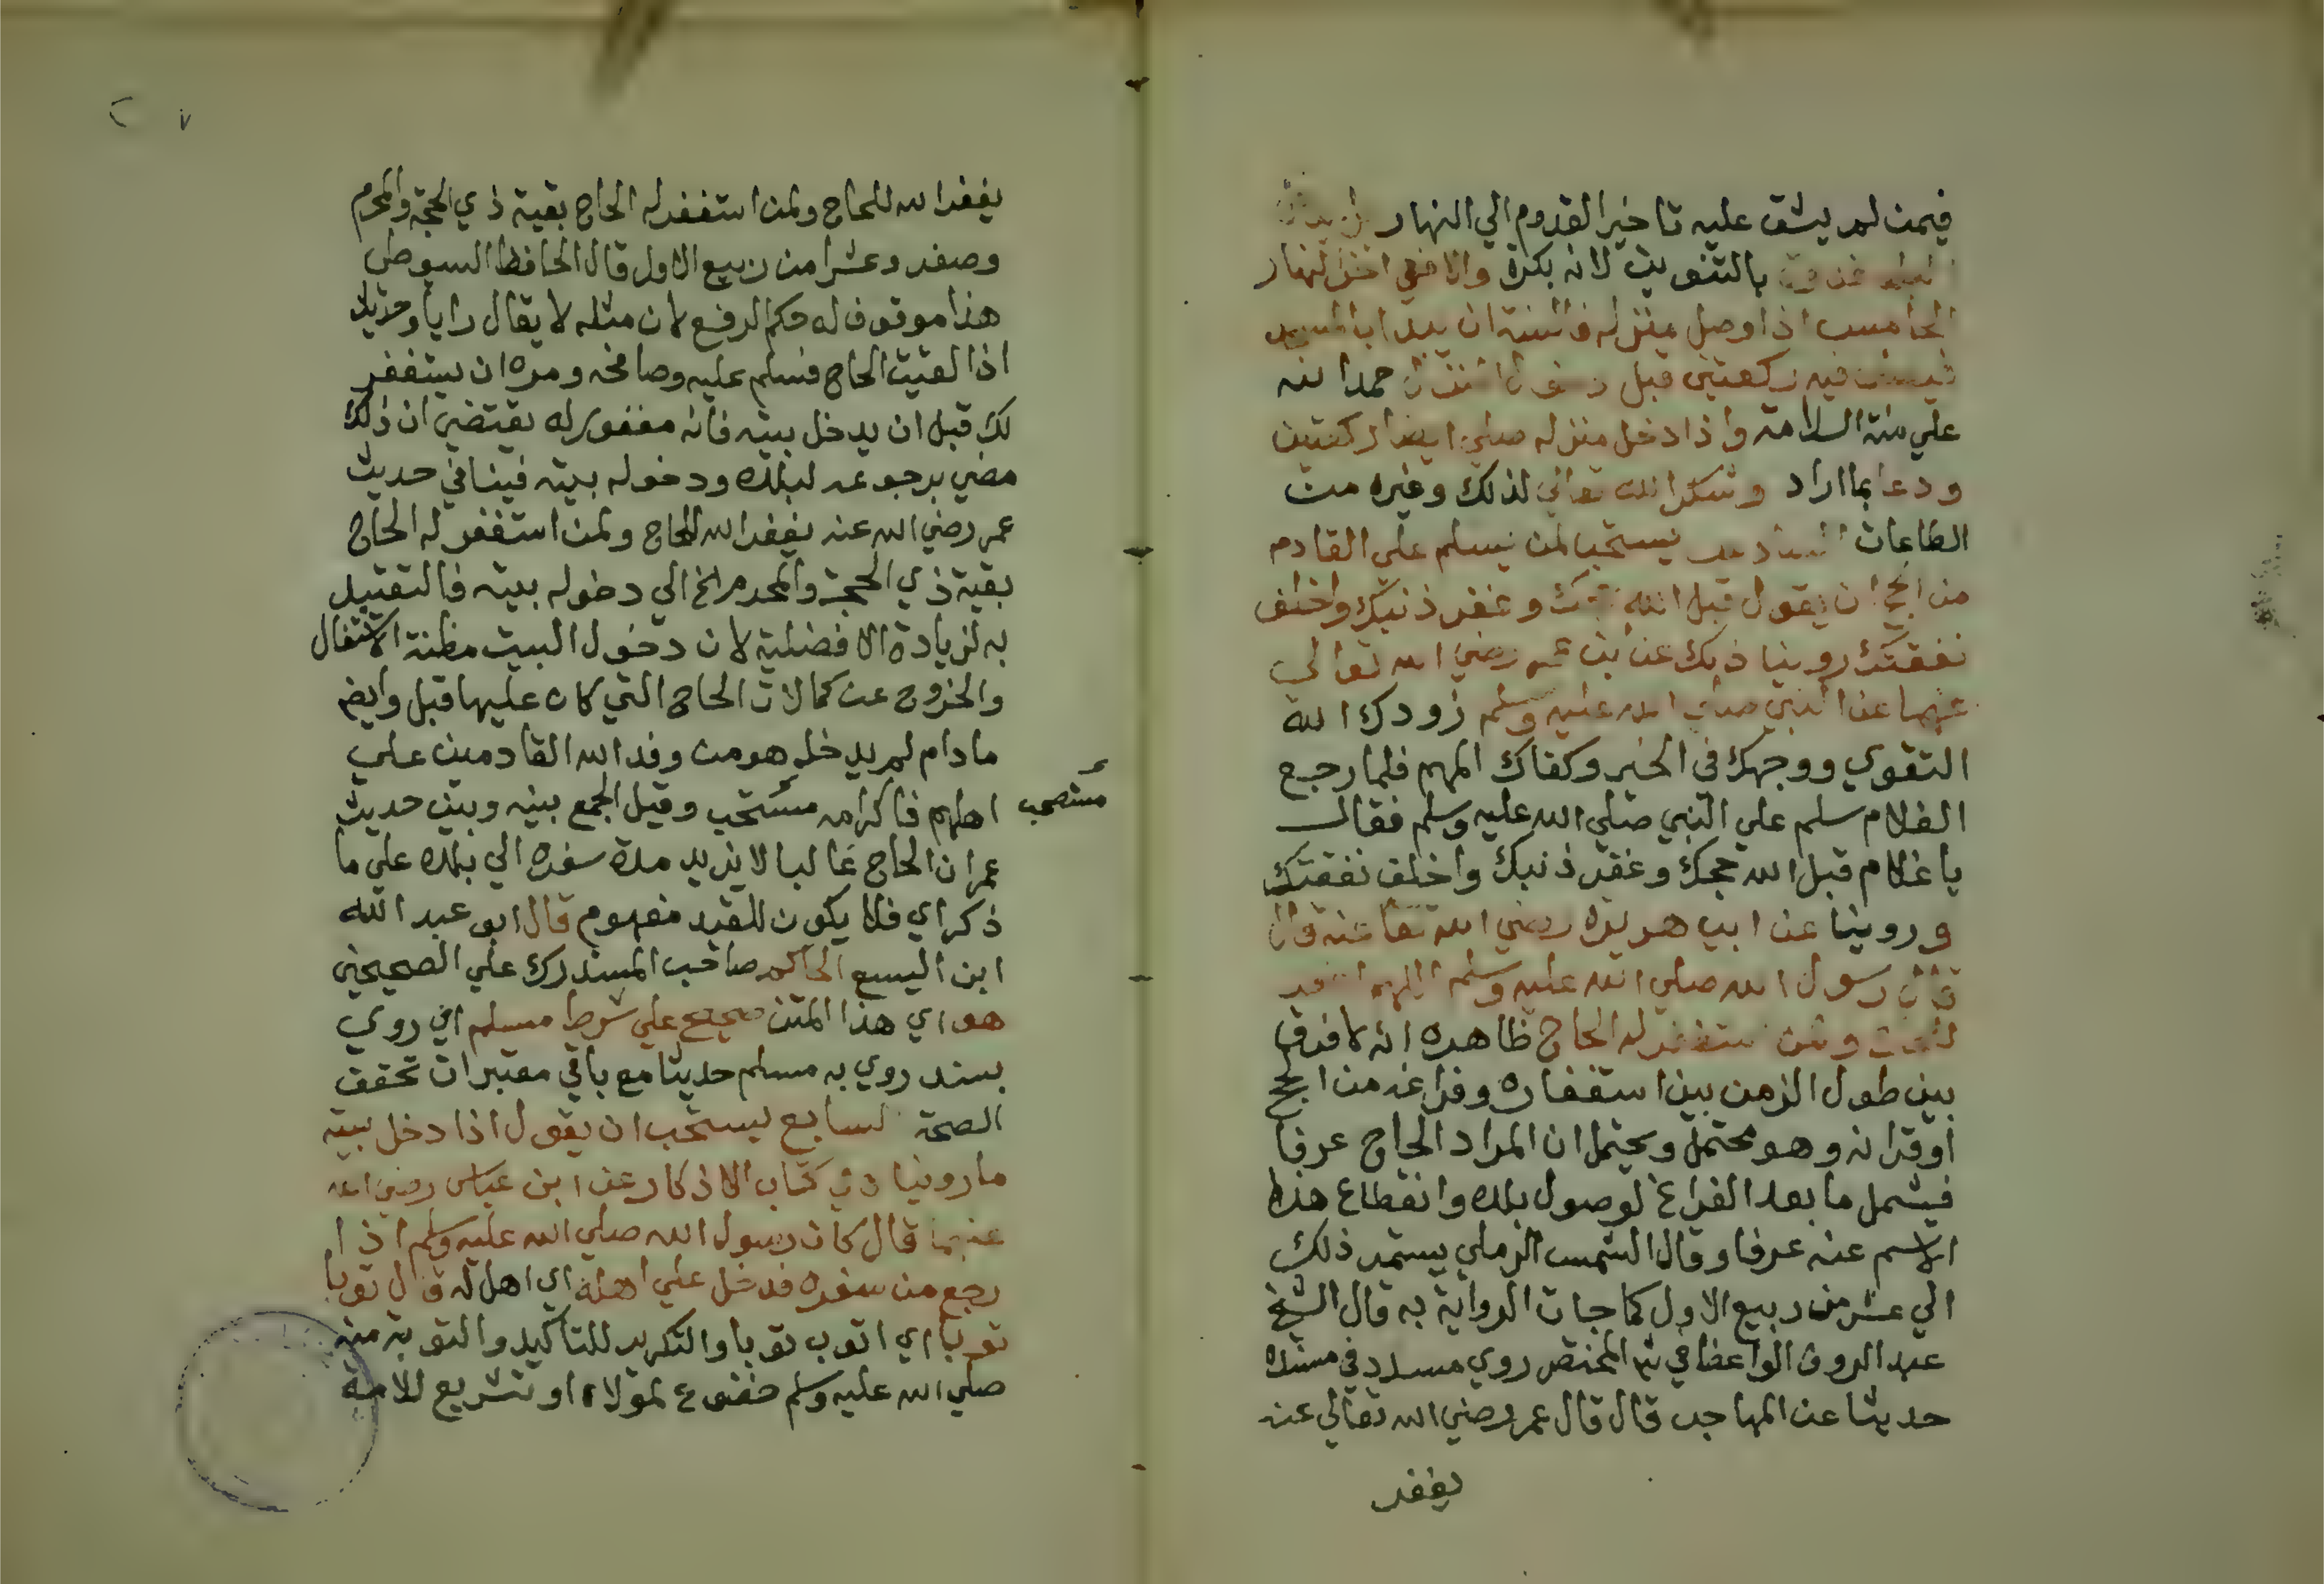 فيمن لم يشق عليه تاخير القدوم الي النهار
بالتنوين لانه بكرة والا ففي اخر النهار
الخامس اذا وصل منزله فالسنة ان يبدا بالمسجد
فيه ركعتين قبل حمدا لله
علي منة السلامة واذا دخل منزله صلي ايضا ركعتين
ودعا بما اراد وشكر الله تعالي لذلك وغيره من
الطاعات السادس يستحب لمن يسلم علي القادم
من الحج ان يقول قبل الله حجك وغفر ذنبك واخلف
نفقتك روينا ذلك عن ابن عمر رضي الله تعالي
عنهما عن النبي صلي الله عليه وسلم زودك الله
التقوي ووجهك في الخير وكفاك المهم فلما رجع
الغلام سلم علي النبي صلي الله عليه وسلم فقال
يا غلام قبل الله حجك وغفر ذنبك واخلف نفقتك
وروينا عن ابي هريرة رضي الله تعا عنه قال
قال رسول الله صلي الله عليه وسلم اللهم اغفر
ولمن استغفر له الحاج ظاهره انه لا فرق
بين طول الزمن بين استغفاره وفراغه من الحج
او قرانه وهو محتمل ويحتمل ان المراد الحاج عرفا
فيشمل ما بعد الفراغ لوصول بلده وانقطاع هذا
الاسم عنه عرفا وقال الشمس الرملي يستمر ذلك
الي عشر من ربيع الاول كما جات الرواية به قال الشيخ
عبد الروف الواعظ في شر المختصر روي مسدد في مسنده
حديثا عن المهاجر قال قال عمر رضي الله تعالي عنه
يغفر
يغفر الله للحاج ولمن استغفر له الحاج بقية ذي الحجة والمحرم
وصفر وعشرا من ربيع الاول قال الحافظ السيوطي
هذا موقوف له حكم الرفع لان مثله لا يقال رايا وحديث
اذا لقيت الحاج فسلم عليه وصافحه ومره ان يستغفر
لك قبل ان يدخل بيته فانه مغفور له يقتضي ان ذلك
مضي برجوعه لبلده ودخوله بيته فينافي حديث
عمر رضي الله عنه يغفر الله للحاج ولمن استغفر له الحاج
بقية ذي الحجة والمحرم الخ الي دخوله بيته فالتقييد
به لزيادة الافضلية لان دخول البيت مظنة الاشتغال
والخروج عن كمالات الحاج التي كان عليها قبل وايضم
ما دام لم يدخل هو من وفد الله القادمين علي
اهلهم فاكرامه مستحب وقيل الجمع بينه وبين حديث
مستصحب
عمر ان الحاج غالبا لا يزيد مدة سفره الي بلده علي ما
ذكر اي فلا يكون للقيد مفهوم قال ابو عبد الله
ابن اليسع الحاكم صاحب المستدرك علي الصحيحين
هو اي هذا المتن صحيح علي شرط مسلم اي روي
بسند روي به مسلم حديثا مع باقي معتبرات تحقق
الصحة السابع يستحب ان يقول اذا دخل بيته
ما روينا في كتاب الاذكار عن ابن عباس رضي الله
عنهما قال كان رسول الله صلي الله عليه وسلم اذا
رجع من سفره فدخل علي اهله اي اهل له قال توبا
توبا اي اتوب توبا والتكرير للتاكيد والتوبة منه
صلي الله عليه وسلم خضوع لمولاه او تشريع للامة